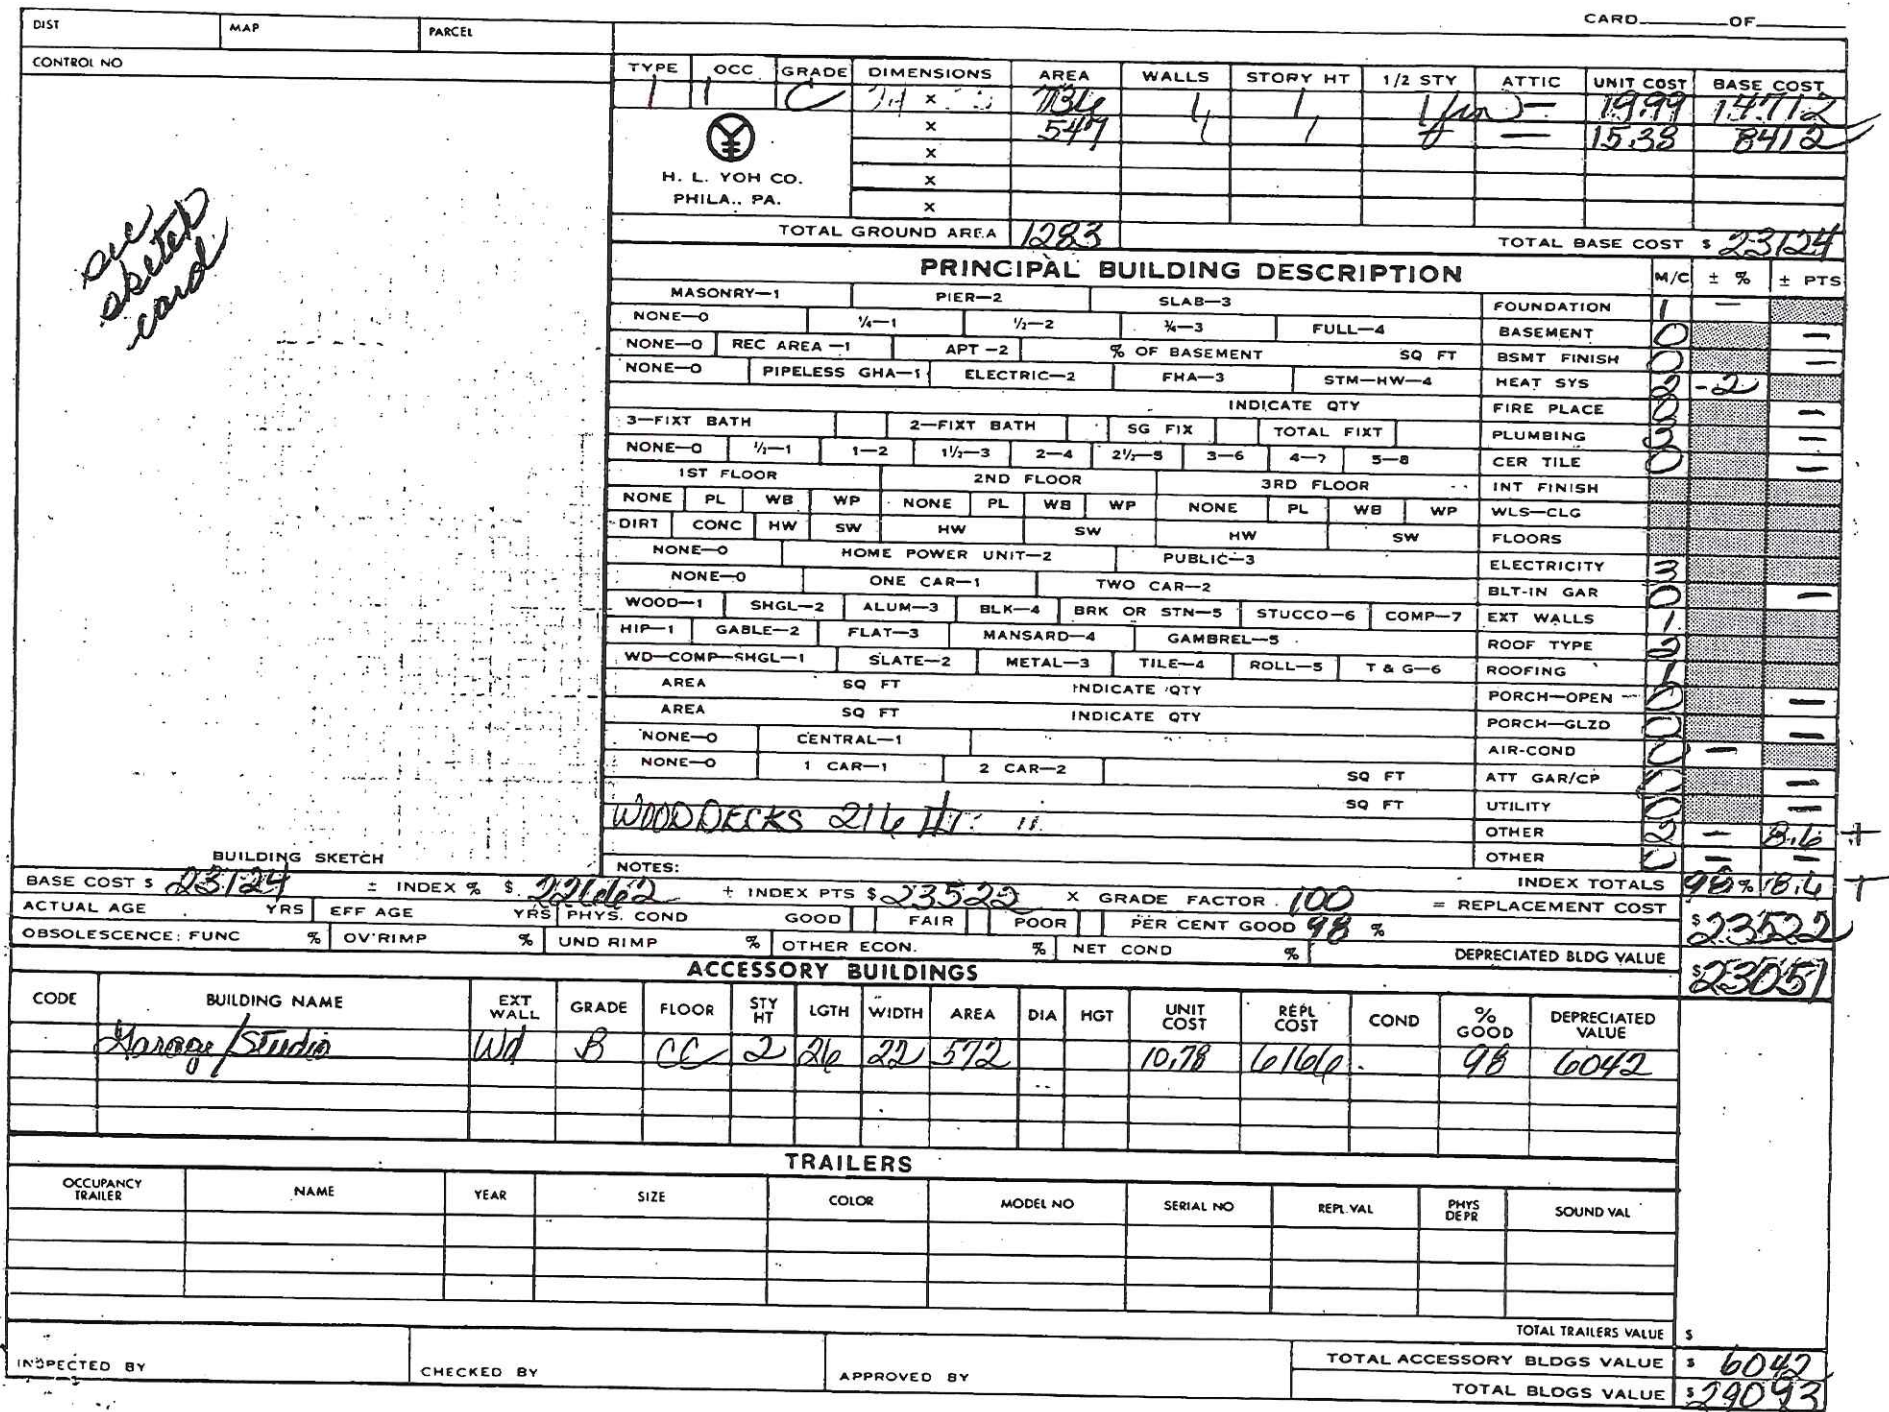 CARD OF
DIST MAP PARCEL
CONTROL NO
TYPE OCC GRADE DIMENSIONS AREA WALLS STORY HT 1/2 STY ATTIC UNIT COST BASE COST
1 1 C x 736 1 1 — 19.99 14712
x 547 1 1 — 15.38 8412
x
H. L. YOH CO. x
PHILA., PA. x
see sketch card
TOTAL GROUND AREA 1283 TOTAL BASE COST $ 23124
PRINCIPAL BUILDING DESCRIPTION M/C ± % ± PTS
MASONRY—1 PIER—2 SLAB—3 FOUNDATION 1 —
NONE—0 ¼—1 ½—2 ¾—3 FULL—4 BASEMENT 0 —
NONE—0 REC AREA—1 APT—2 % OF BASEMENT SQ FT BSMT FINISH 0 —
NONE—0 PIPELESS GHA—1 ELECTRIC—2 FHA—3 STM—HW—4 HEAT SYS 2 -2
INDICATE QTY FIRE PLACE 0 —
3—FIXT BATH 2—FIXT BATH SG FIX TOTAL FIXT PLUMBING —
NONE—0 ½—1 1—2 1½—3 2—4 2½—5 3—6 4—7 5—8 CER TILE 0 —
1ST FLOOR 2ND FLOOR 3RD FLOOR INT FINISH
NONE PL WB WP NONE PL WB WP NONE PL WB WP WLS—CLG
DIRT CONC HW SW HW SW HW SW FLOORS
NONE—0 HOME POWER UNIT—2 PUBLIC—3 ELECTRICITY 3
NONE—0 ONE CAR—1 TWO CAR—2 BLT-IN GAR 0 —
WOOD—1 SHGL—2 ALUM—3 BLK—4 BRK OR STN—5 STUCCO—6 COMP—7 EXT WALLS 1
HIP—1 GABLE—2 FLAT—3 MANSARD—4 GAMBREL—5 ROOF TYPE 2
WD—COMP—SHGL—1 SLATE—2 METAL—3 TILE—4 ROLL—5 T & G—6 ROOFING 1
AREA SQ FT INDICATE QTY PORCH—OPEN 0 —
AREA SQ FT INDICATE QTY PORCH—GLZD 0 —
NONE—0 CENTRAL—1 AIR-COND 0 —
NONE—0 1 CAR—1 2 CAR—2 SQ FT ATT GAR/CP 0 —
SQ FT UTILITY 0 —
WOOD DECKS 216 OTHER 2 — 8.6 +
BUILDING SKETCH NOTES: OTHER 0 — —
BASE COST $ 23124 ± INDEX % $ 22662 + INDEX PTS $ 23522 X GRADE FACTOR 100 INDEX TOTALS 98 % 8.6 +
ACTUAL AGE YRS EFF AGE YRS PHYS. COND GOOD FAIR POOR PER CENT GOOD 98 % = REPLACEMENT COST $ 23522
OBSOLESCENCE: FUNC % OV'RIMP % UND RIMP % OTHER ECON. % NET COND % DEPRECIATED BLDG VALUE $ 23051
ACCESSORY BUILDINGS
CODE BUILDING NAME EXT WALL GRADE FLOOR STY HT LGTH WIDTH AREA DIA HGT UNIT COST REPL COST COND % GOOD DEPRECIATED VALUE
Garage/Studio Wd B CC 2 26 22 572 10.78 6166 98 6042
TRAILERS
OCCUPANCY TRAILER NAME YEAR SIZE COLOR MODEL NO SERIAL NO REPL VAL PHYS DEPR SOUND VAL
TOTAL TRAILERS VALUE $
INSPECTED BY CHECKED BY APPROVED BY TOTAL ACCESSORY BLDGS VALUE $ 6042
TOTAL BLDGS VALUE $ 29093